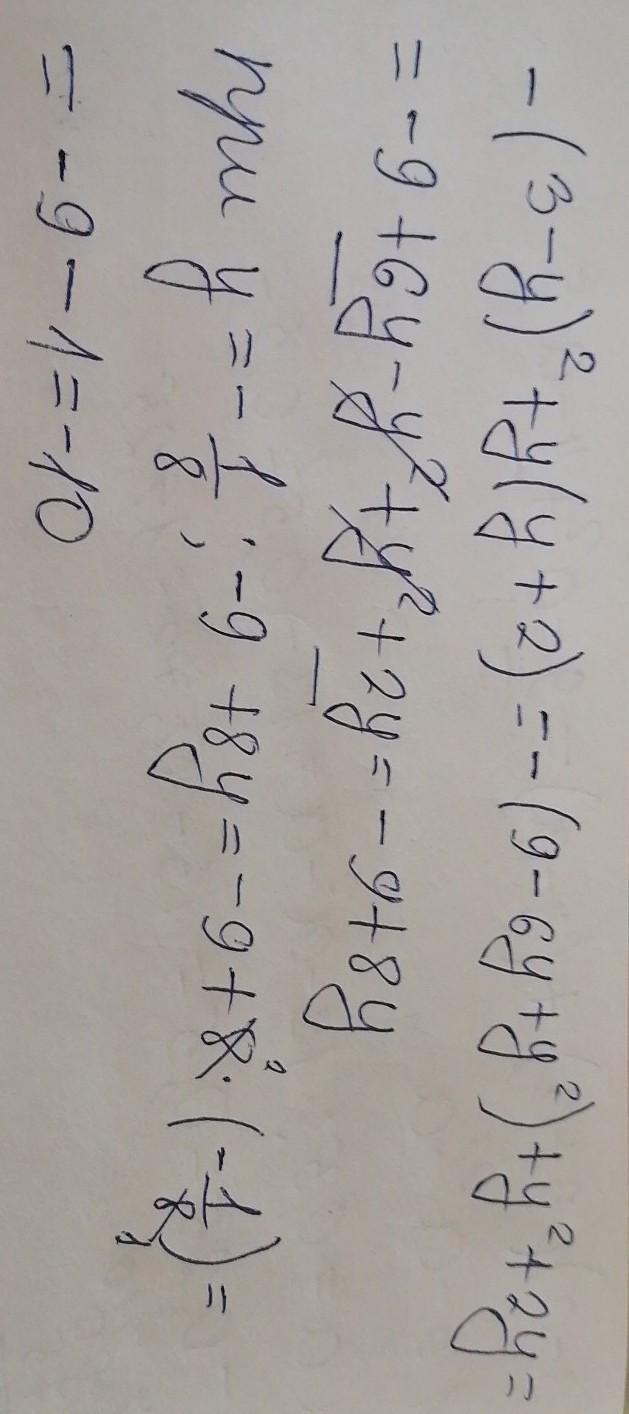 - (3 - y)² + y(y + 2) = - (9 - 6y + y²) + y² + 2y =
= -9 + 6y - y² + y² + 2y = - 9 + 8y
при y = - 1/8 ; -9 + 8y = -9 + 8 · (- 1/8) =
= -9 - 1 = -10